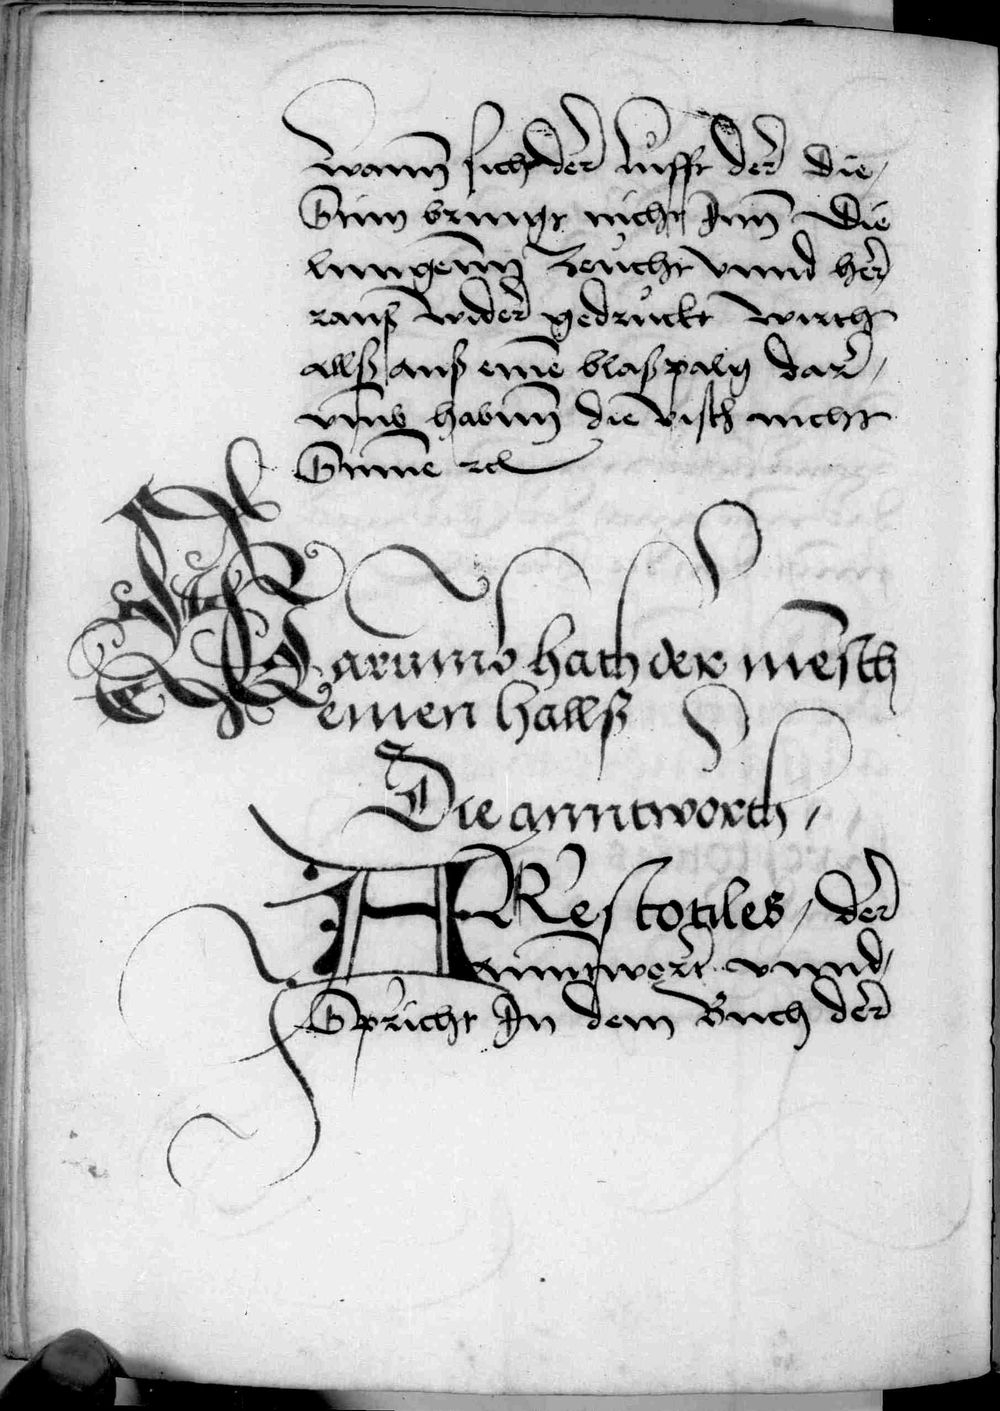 wann sich der lufft der die,
Stim bringt nicht Inn die
lungenn zeucht vnnd her
rauß wider gedruckt wirth
allß auß eine blaßpalg dar,
vmb habenn die visch nicht
Stimme rc
Warumb hath der mensch
einen hallß
Die anntworth,
ARestotiles, der
anntwort vnnd,
Spricht In dem Buch der